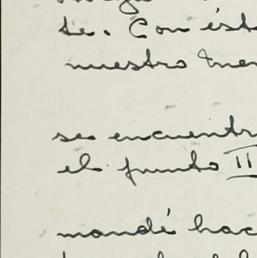 te. Con ést
nuestro
se encuentr
el punto II
mandé hac